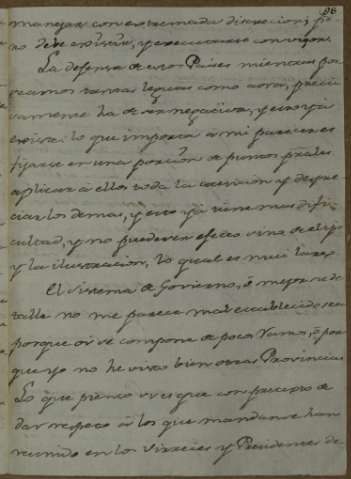 96
manejar con estremada discrecion; pe-
ro debe existir, y executarse con vigor.
La defensa de estos Paises mientras por
seamos tantas leguas como aora, preci-
samente ha de ser negativa, y esto ya
existe: lo que importa à mi parecer es
fijarse en una porcion de puntos prales
aplicar à ellos toda la atencion y despre-
ciar los demas, y esto ya tiene mas difi-
cultad, y no puede ser efecto sino de el tpo
y la ilustracion, lo qual es mui largo.
El sistema de Govierno, ó mejor se de-
talla no me parece mal establecido sea
porque oi se compone de poco Ramo, ò por
que yo no he visto bien otras Provincias
Lo que pienso si es que con pretexto de
dar respeto à los que mandan se han
reunido en los Virreies y Presidentes de